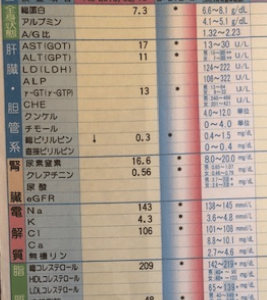 全身状態
総蛋白 7.3 * 6.6~8.1 g/dL
アルブミン 4.1~5.1 g/dL
A/G比 1.32~2.23
肝臓・胆管系
AST(GOT) 17 * 13~30 U/L
ALT(GPT) 11 *
LD(LDH) 124~222 U/L
ALP 106~322 U/L
γ-GT(γ-GTP) 13 *
CHE
クンケル
チモール
総ビリルビン ↓ 0.3 * 0.4~1.5 mg/dL
直接ビリルビン 0~0.4
腎臓
尿素窒素 16.6 * 8.0~20.0
クレアチニン 0.56 *
尿酸
eGFR
電解質
Na 143 * 138~145
K 4.3 * 3.6~4.8
Cl 106 * 101~108
Ca 8.8~10.1
無機リン 2.7~4.6
脂
総コレステロール 209 *
HDLコレステロール
LDLコレステロール